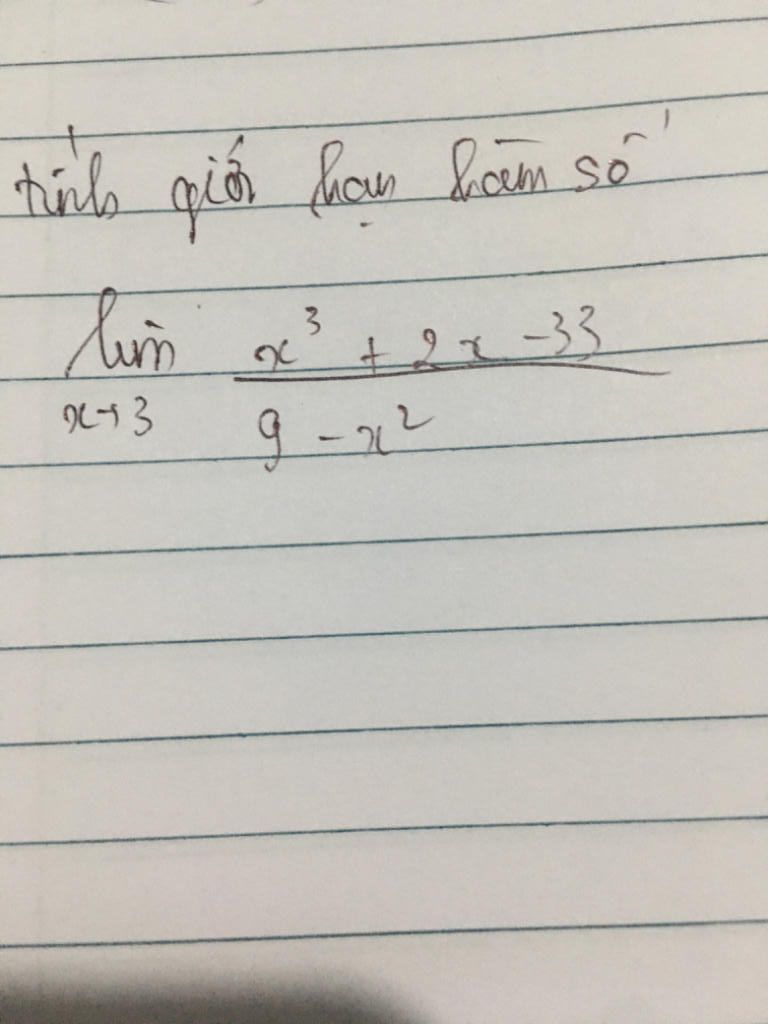 tính giới hạn hàm số
lim x³ + 2x - 33
x→3 9 - x²